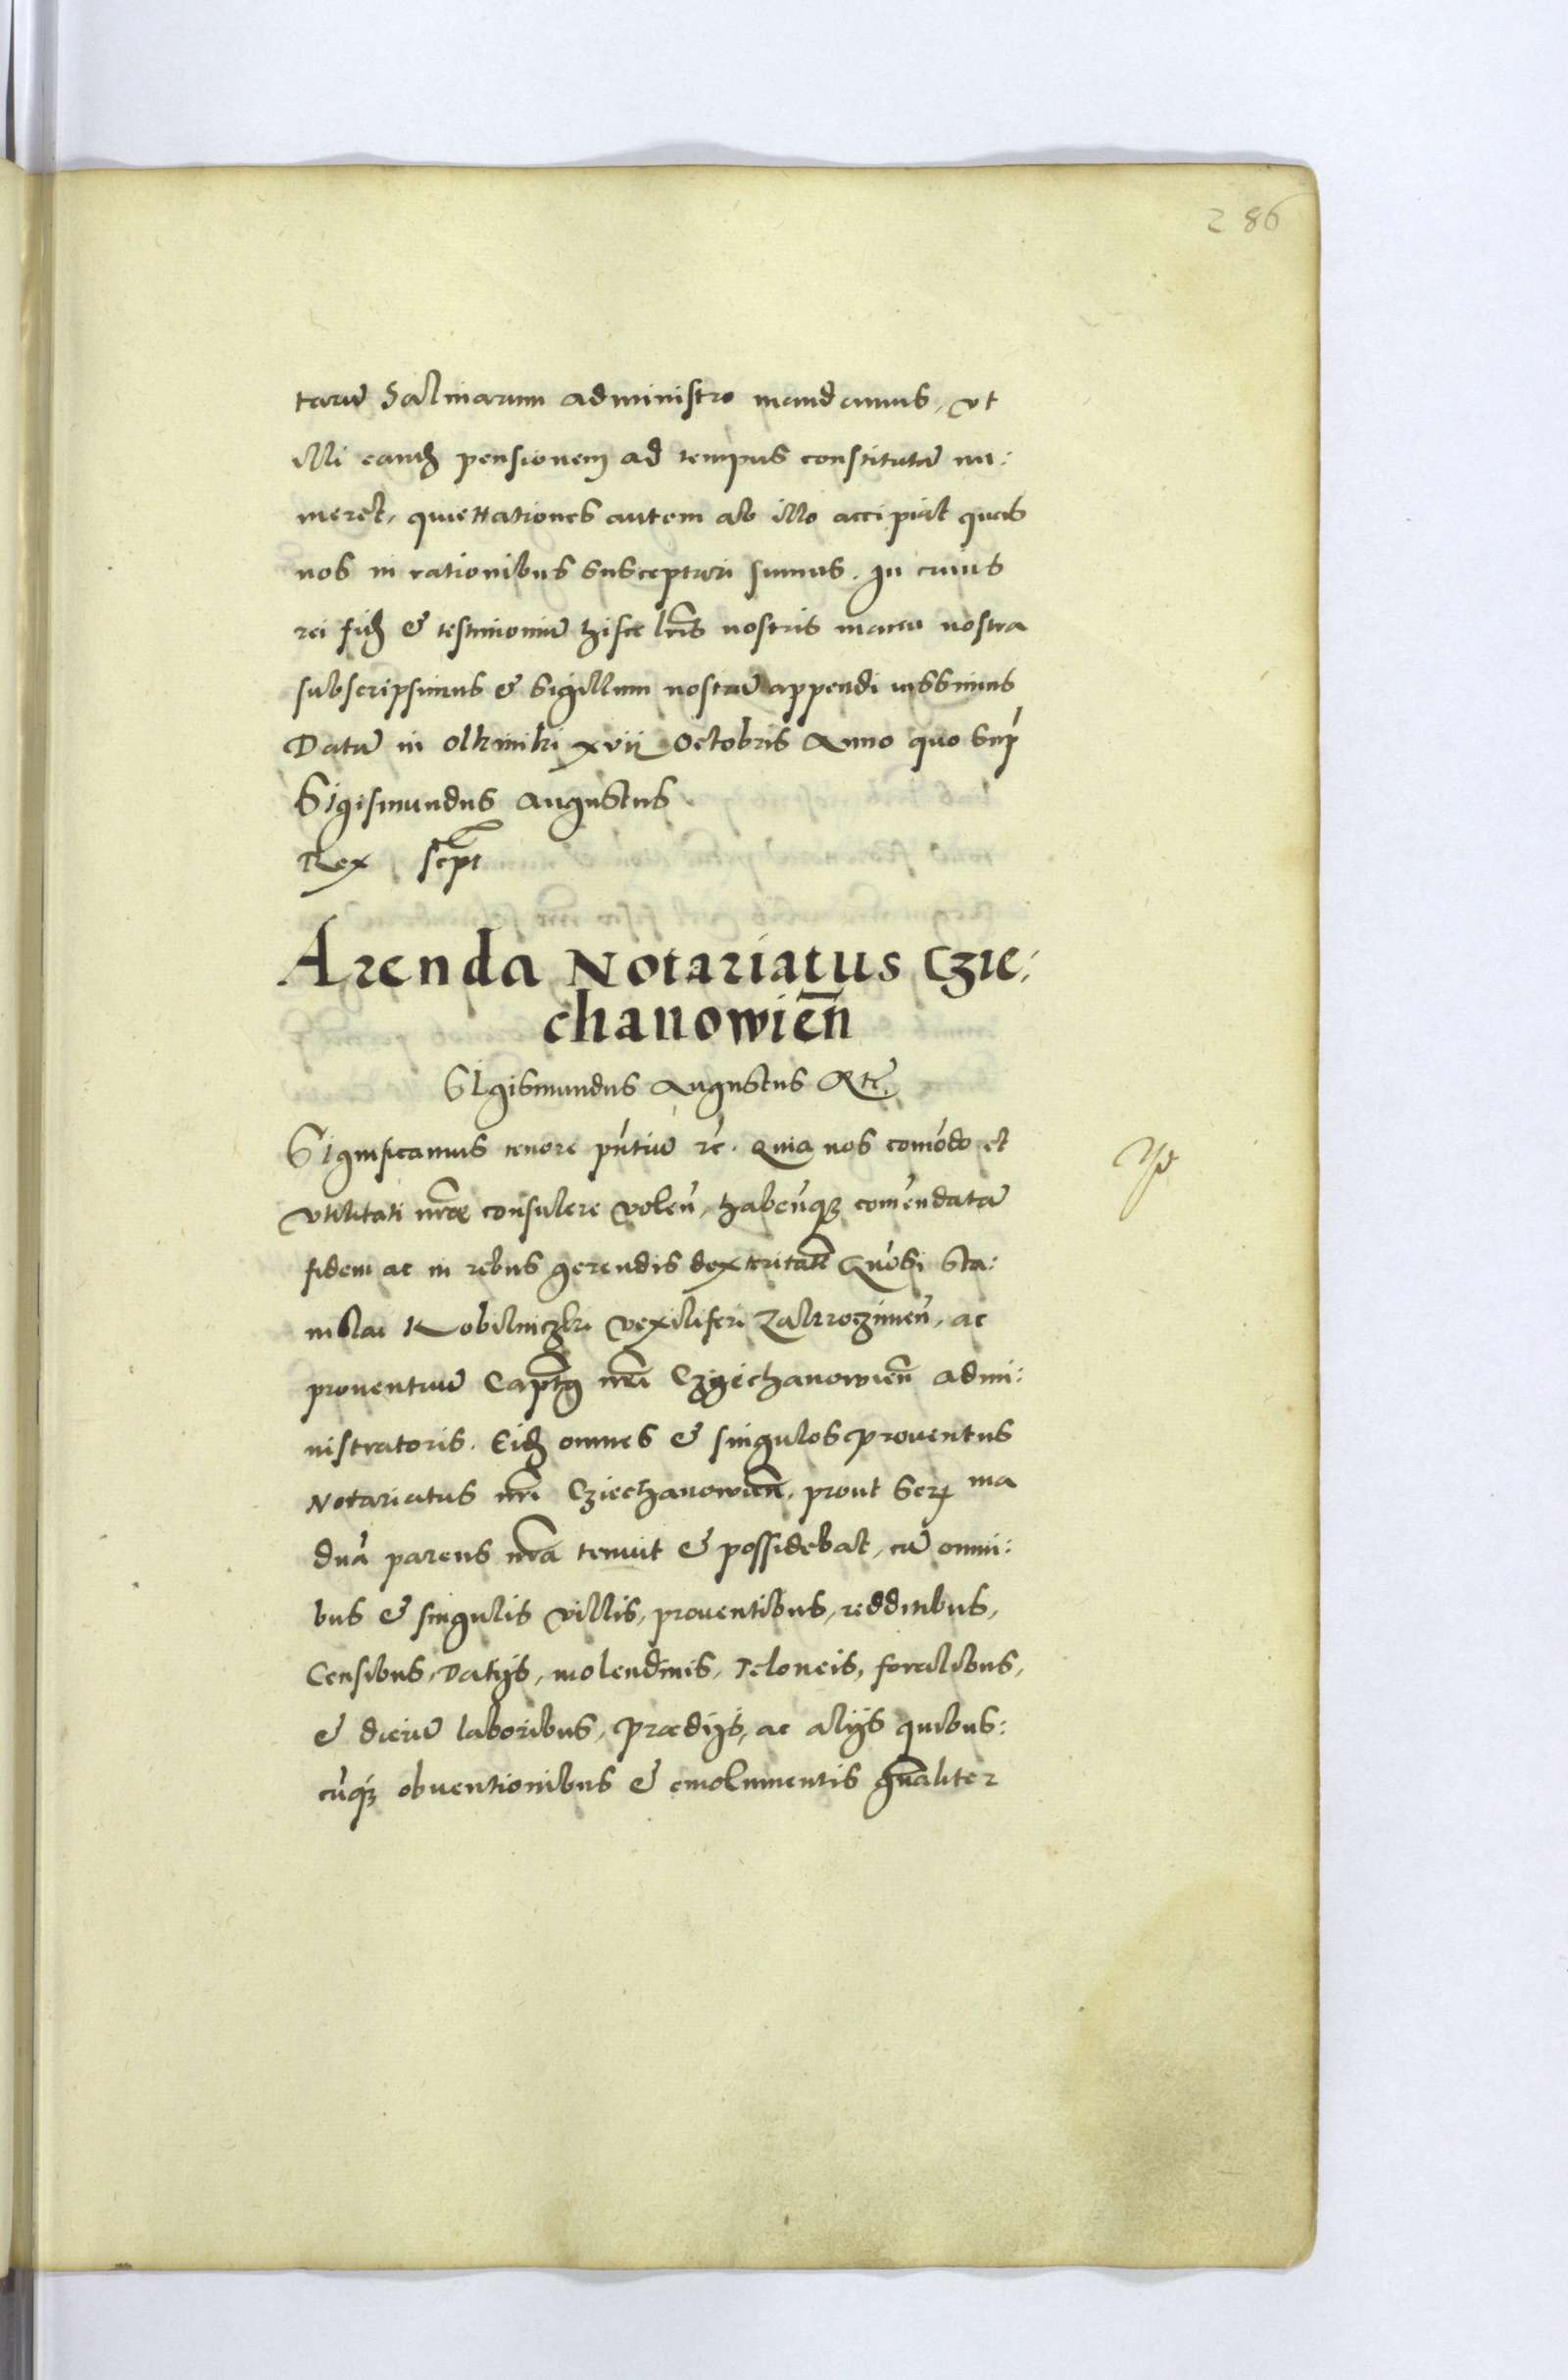 286
tarū Salinarum administro mandamus, vt
illi eandē pensionem ad tempus constitutā nu:
meret, quiettationes autem ab illo accipiat quas
nos in rationibus suscepturi sumus. In cuius
rei fidē & testimoniū hisce lr̄is nostris manu nostra
subscripsimus & Sigillum nostrū appendi iussimus
Datū in Olkiniki xvij Octobris Anno quo sup̄
Sigismundus Augustus
Rex scpt
Arenda Notariatus Czie:
chanowien̄
Sigismundus Augustus &tc̄.
Significamus tenore pn̄tiū &c̄. Quia nos com̄odo et
vtilitati nr̄æ consulere volen̄, haben̄qꝫ com̄endatā
fidem ac in rebus gerendis dexteritatē Gn̄osi Sta:
nislai Kobilniczki Vexiliferi Zakroczimen̄, ac
prouentuū Capt̄ nr̄i Czyechanowien̄ admi:
nistratoris. Eidē omnes & singulos prouentus
Notariatus nr̄i Cziechanowien̄. prout Ser̄ ma
dn̄a parens nr̄a tenuit & possidebat, cū omni:
bus & singulis villis, prouentibus, redditibus,
Censibus, Datijs, molendinis, Teloneis, foralibus,
& dierū laboribus, Prædijs, ac alijs quibus:
cūqꝫ obuentionibus & emolumentis gn̄aliter